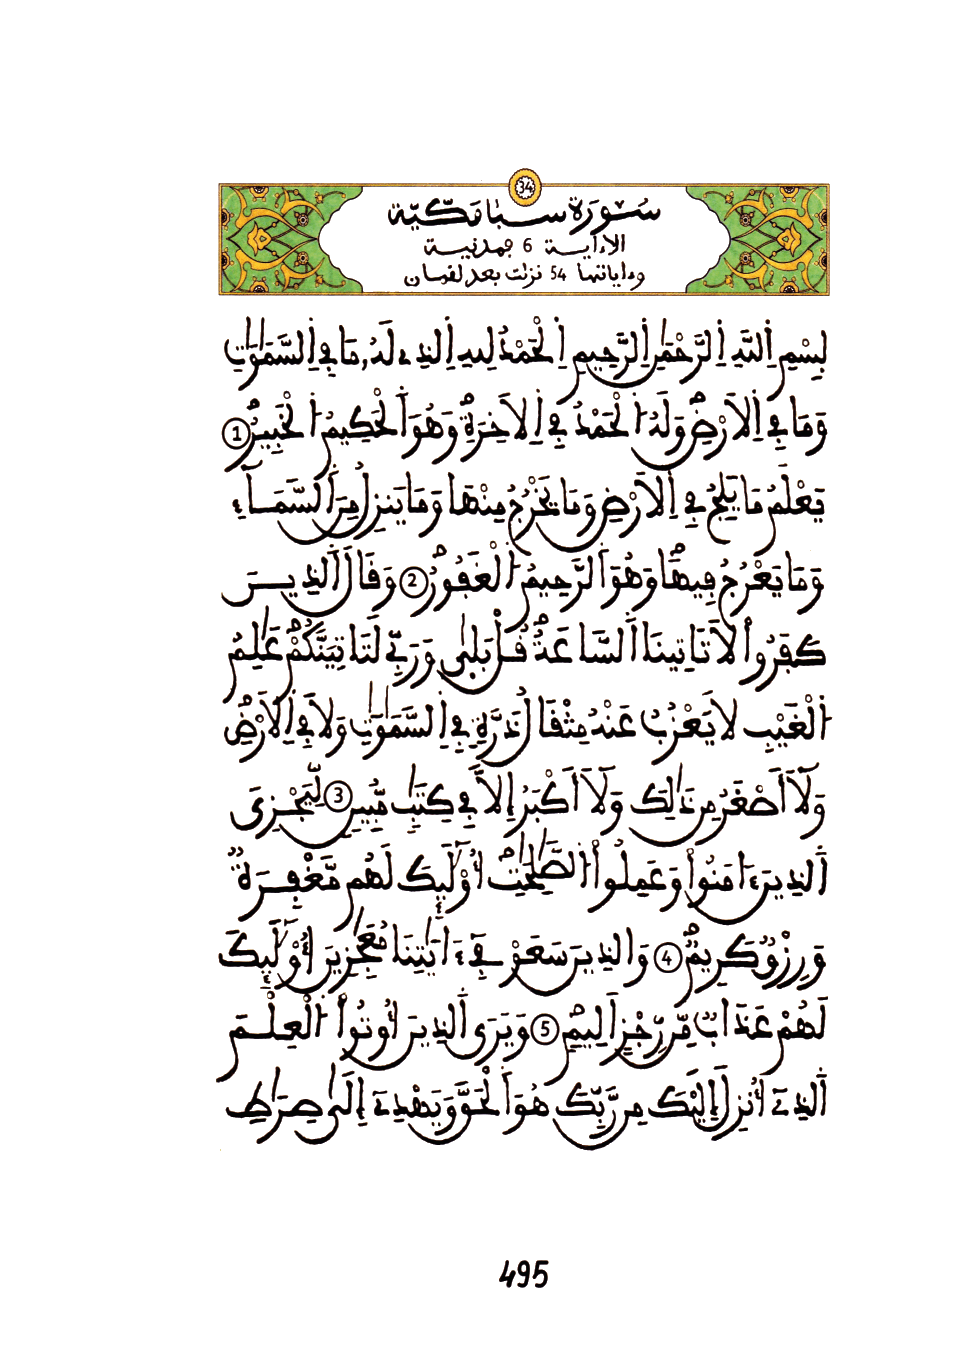 34
سُورَة سبا مكّيّة
الا ءاية 6 فمدنية
وءاياتها 54 نزلت بعد لقمان
بِسْمِ اِللَّهِ اِلرَّحْمَٰنِ اِلرَّحِيمِ اِلْحَمْدُ لِلهِ اِلذِے لَهُۥ مَا فِے اِلسَّمَٰوَٰتِ
وَمَا فِے اِلَارْضِ وَلَهُ اُلْحَمْدُ فِے اِلَاخِرَةِ وَهُوَ اَلْحَكِيمُ اُلْخَبِيرُ 1
يَعْلَمُ مَا يَلِجُ فِے اِلَارْضِ وَمَا يَخْرُجُ مِنْهَا وَمَا يَنزِلُ مِنَ اَلسَّمَآءِ
وَمَا يَعْرُجُ فِيهَا وَهُوَ اَلرَّحِيمُ اُلْغَفُورُ 2 وَقَالَ اَلذِينَ
كَفَرُواْ لَا تَاتِينَا اَلسَّاعَةُ قُلْ بَلَىٰ وَرَبِّے لَتَاتِيَنَّكُمْ عَٰلِمُ
اُلْغَيْبِ لَا يَعْزُبُ عَنْهُ مِثْقَالُ ذَرَّةٍ فِے اِلسَّمَٰوَٰتِ وَلَا فِے اِلَارْضِ
وَلَآ أَصْغَرُ مِن ذَٰلِكَ وَلَآ أَكْبَرُ إِلَّا فِے كِتَٰبٍ مُّبِينٍ 3 لِّيَجْزِىَ
اَلذِينَ ءَامَنُواْ وَعَمِلُواْ اُلصَّٰلِحَٰتِ أُوْلَٰٓئِكَ لَهُم مَّغْفِرَةٌ
وَرِزْقٌ كَرِيمٌ 4 وَالذِينَ سَعَوْ فِےٓ ءَايَٰتِنَا مُعَٰجِزِينَ أُوْلَٰٓئِكَ
لَهُمْ عَذَابٌ مِّن رِّجْزٍ اَلِيمٍ 5 وَيَرَى اَلذِينَ أُوتُواْ اُلْعِلْمَ
اَلذِےٓ أُنزِلَ إِلَيْكَ مِن رَّبِّكَ هُوَ اَلْحَقَّ وَيَهْدِےٓ إِلَىٰ صِرَٰطِ
495